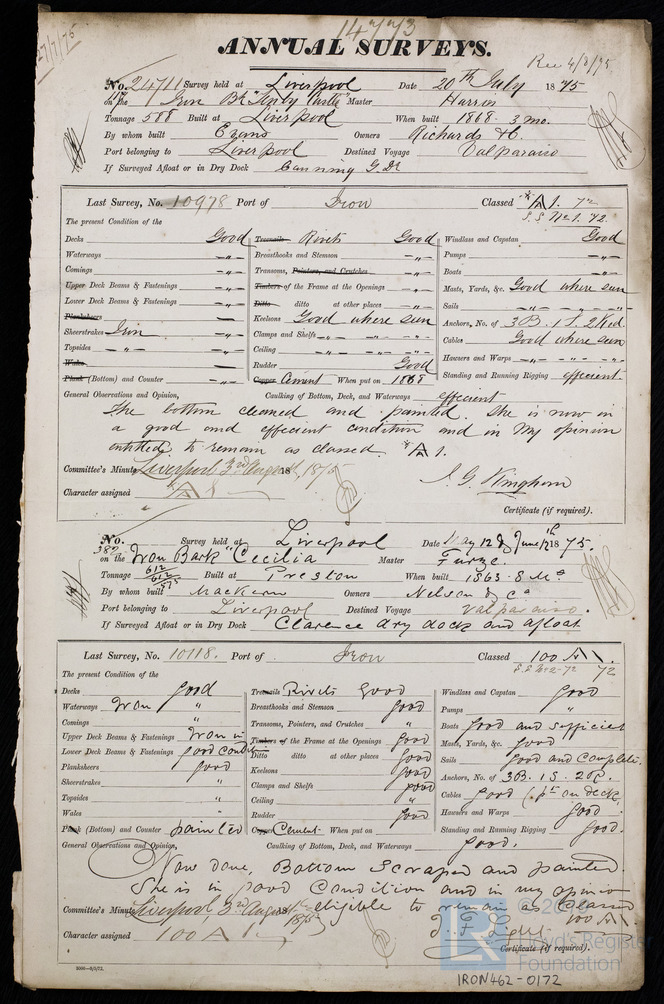 27/7/75
14773
ANNUAL SURVEYS.
Rec 4/8/75
No. 24711 Survey held at Liverpool Date 20th July 1875
on the Iron Bk "Castle" Master Harris
Tonnage 588 Built at Liverpool When built 1868 - 3 mo.
By whom built Evans Owners Richards & Co.
Port belonging to Liverpool Destined Voyage Valparaiso
If Surveyed Afloat or in Dry Dock Canning G. Dk
Last Survey, No. 10978 Port of Iron Classed A 1. 72
S.S No 1. 72.
The present Condition of the
Decks Good Treenails Rivets Good Windlass and Capstan Good
Waterways -"- Breasthooks and Stemson -"- Pumps -"-
Comings -"- Transoms, Pointers, and Crutches -"- Boats -"-
Upper Deck Beams & Fastenings -"- Timbers of the Frame at the Openings -"- Masts, Yards, &c. Good where seen
Lower Deck Beams & Fastenings -"- Ditto ditto at other places -"- Sails -"-
Plansheers Keelsons Good where seen Anchors, No. of 3B. 1S. 2Ked.
Sheerstrakes Iron -"- Clamps and Shelfs -"- Cables Good where seen
Topsides -"- Ceiling -"- Hawsers and Warps -"-
Wales Rudder Good Standing and Running Rigging efficient.
Plank (Bottom) and Counter -"- Copper Cement When put on 1868
General Observations and Opinion, Caulking of Bottom, Deck, and Waterways efficient
The bottom cleaned and painted. She is now in
a good and efficient condition and in my opinion
entitled to remain as classed. A 1.
Committee's Minute Liverpool 3rd August, 1875
Character assigned A 1
J. G. Kingham
Certificate (if required).
No. 382 Survey held at Liverpool Date May 12 & June 12th 1875.
on the Iron Bark "Cecilia Master Furze.
Tonnage 612 Built at Preston When built 1863. 8 Mo
By whom built Mackern Owners Nelson & Co
Port belonging to Liverpool Destined Voyage Valparaiso.
If Surveyed Afloat or in Dry Dock Clarence dry dock and afloat
Last Survey, No. 10118. Port of Iron Classed 100 A 1.
S.S No 2-72 72
The present Condition of the
Decks good Treenails Rivets Good Windlass and Capstan Good
Waterways Iron " Breasthooks and Stemson Good Pumps "
Comings " Transoms, Pointers, and Crutches " Boats Good and sufficient
Upper Deck Beams & Fastenings Iron in Timbers of the Frame at the Openings Good Masts, Yards, &c. good
Lower Deck Beams & Fastenings good condition Ditto ditto at other places Good Sails good and Complete.
Plansheers good Keelsons Good Anchors, No. of 3B. 1S. 2K.
Sheerstrakes " Clamps and Shelfs Good Cables Good (pt on deck,
Topsides " Ceiling " Hawsers and Warps Good
Wales " Rudder Good Standing and Running Rigging Good.
Plank (Bottom) and Counter painted Copper Cement When put on
General Observations and Opinion, Caulking of Bottom, Deck, and Waterways Good.
Now done, Bottom Scraped and painted.
She is in good Condition and in my opinion
eligible to remain as Classed
100 A 1
Committee's Minute Liverpool 3rd August 1875
J. F. Light
Character assigned 100 A 1.
Certificate (if required).
Lloyd's Register
Foundation
IRON462-0172